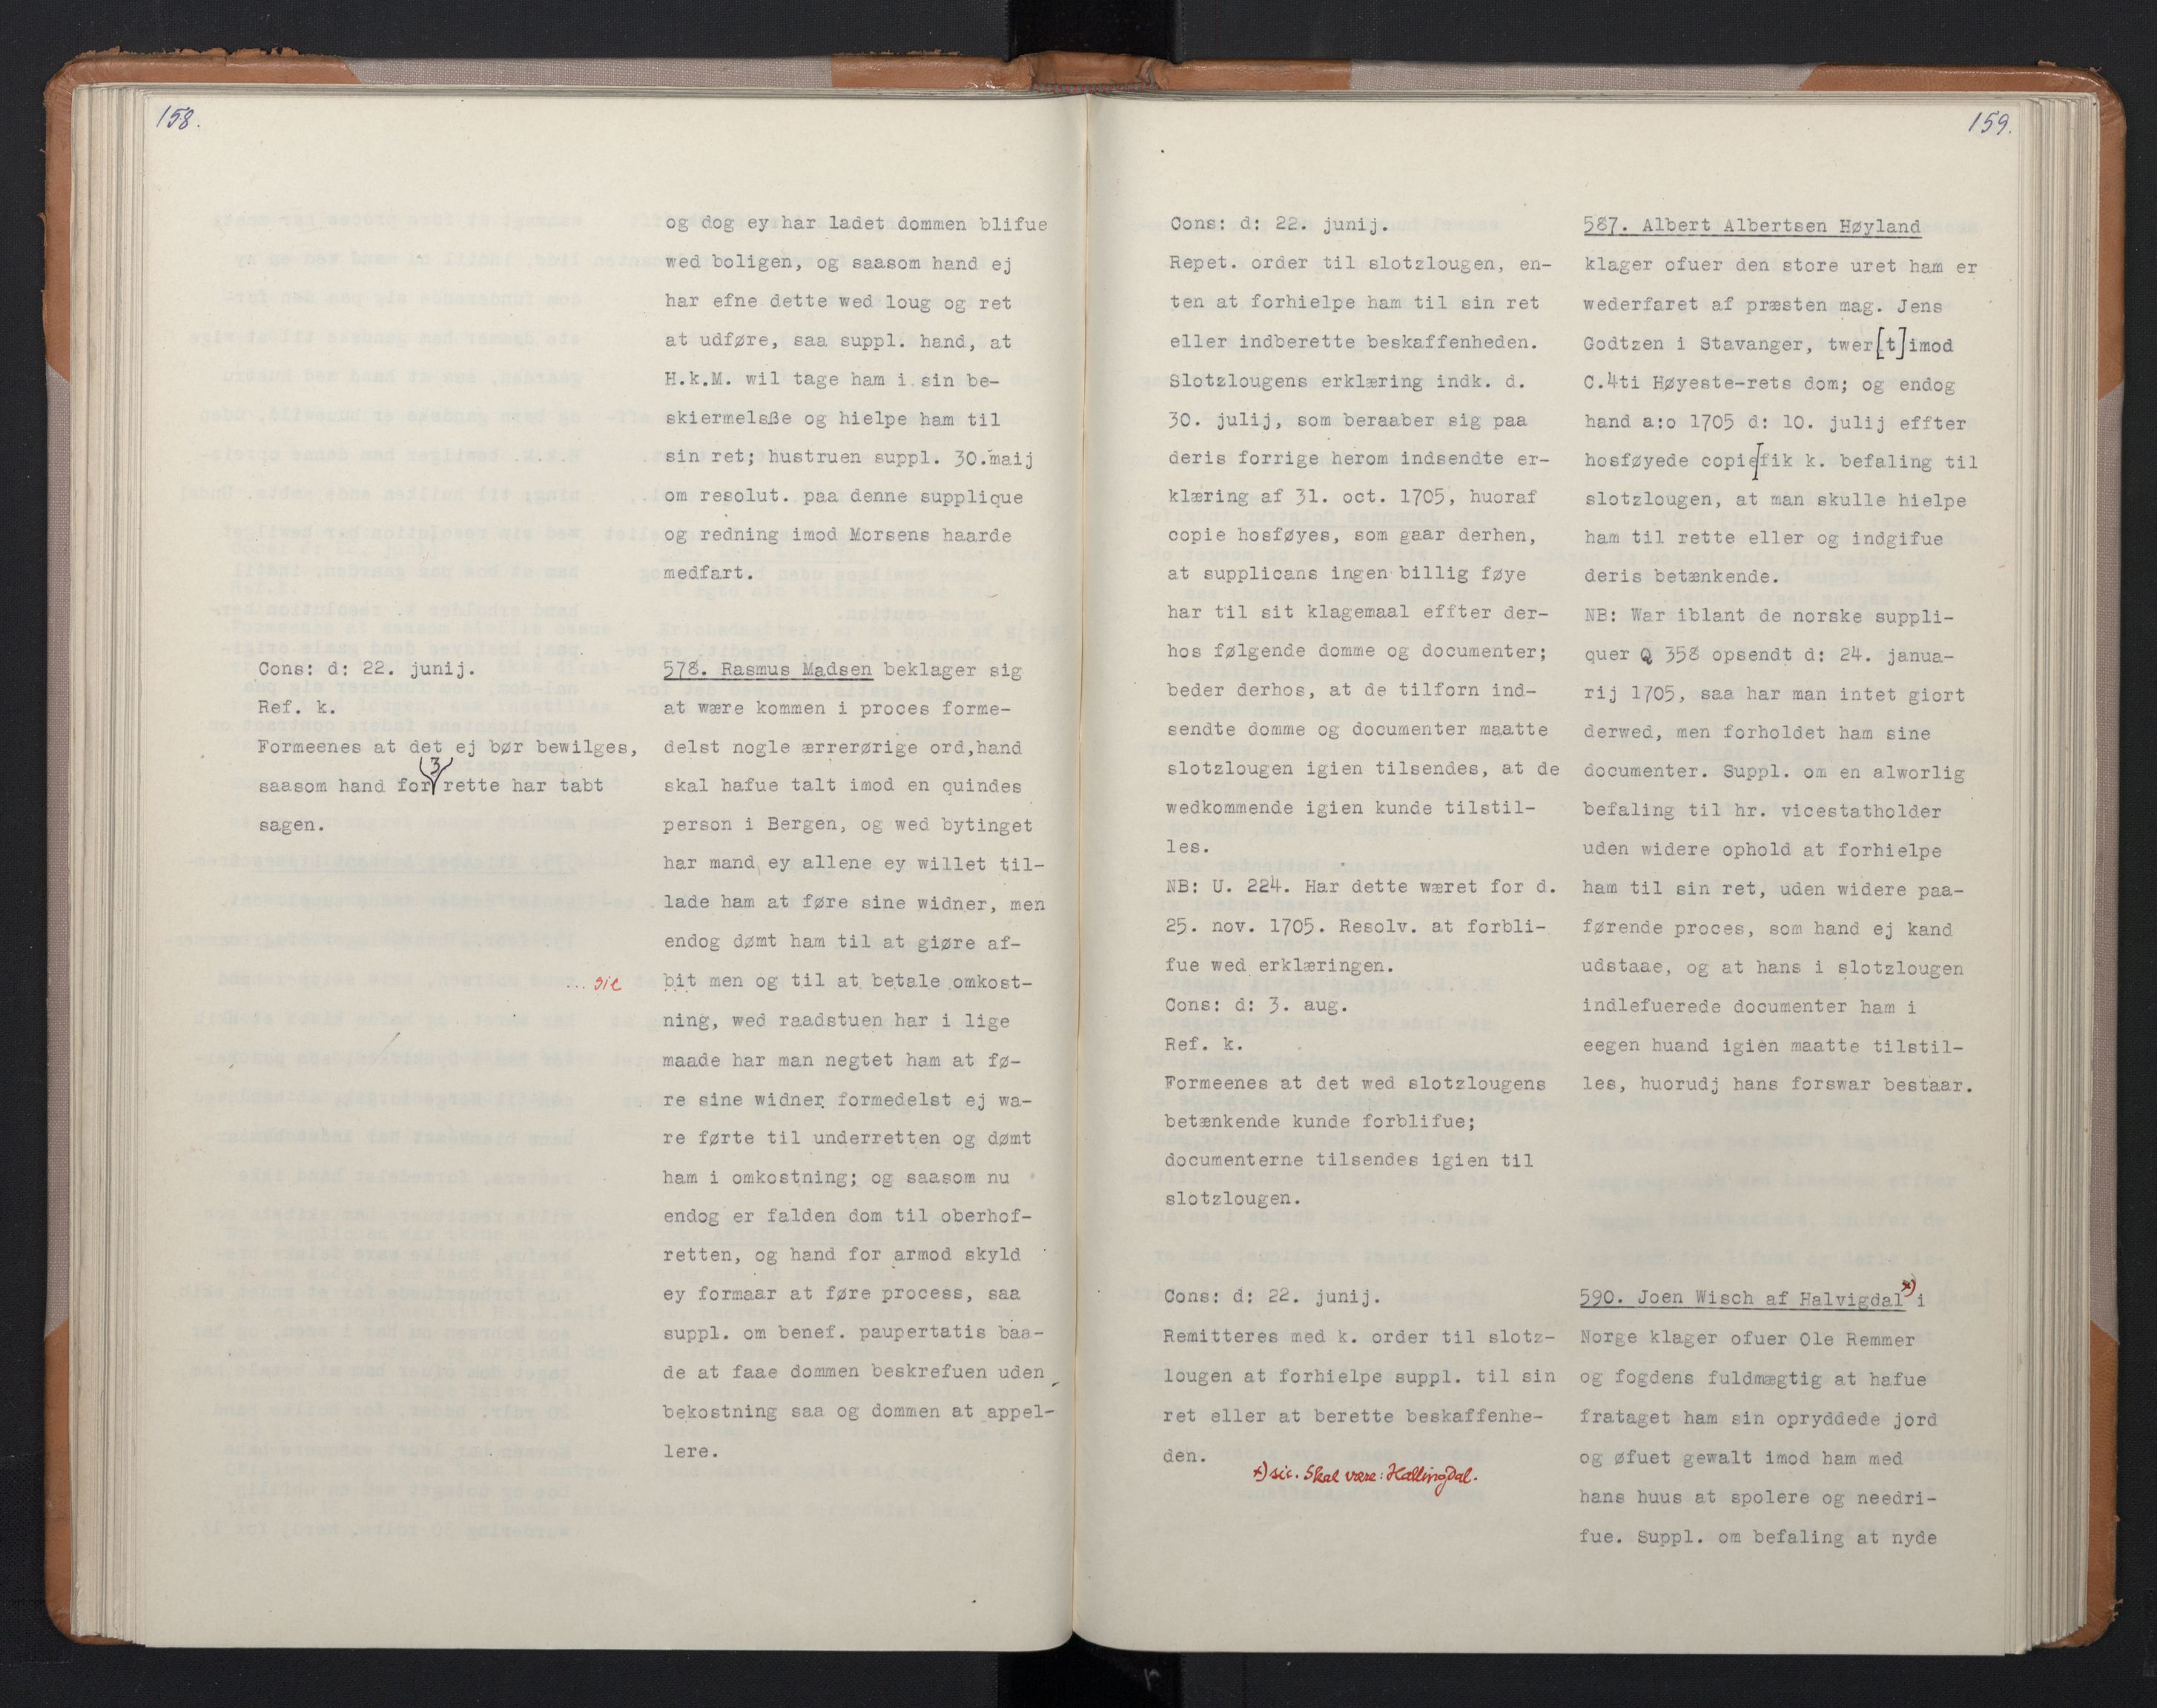 158.
og dog ey har ladet dommen blifue
wed boligen, og saasom hand ej
har efne dette wed loug og ret
at udføre, saa suppl. hand, at
H.k.M. wil tage ham i sin be-
skiermelsße og hielpe ham til
sin ret; hustruen suppl. 30.maij
om resolut. paa denne supplique
og redning imod Morsens haarde
medfart.
Cons: d: 22. junij.
Ref. k.
Formeenes at det ej bør bewilges,
saasom hand for (3) rette har tabt
sagen.
578. Rasmus Madsen beklager sig
at wære kommen i proces forme-
delst nogle ærrerørige ord,hand
skal hafue talt imod en quindes
person i Bergen, og wed bytinget
har mand ey allene ey willet til-
lade ham at føre sine widner, men
endog dømt ham til at giøre af-
... sic bit men og til at betale omkost-
ning, wed raadstuen har i lige
maade har man negtet ham at fø-
re sine widner formedelst ej wa-
re førte til underretten og dømt
ham i omkostning; og saasom nu
endog er falden dom til oberhof-
retten, og hand for armod skyld
ey formaar at føre process, saa
suppl. om benef. paupertatis baa-
de at faae dommen beskrefuen uden
bekostning saa og dommen at appel-
lere.
159.
Cons: d: 22. junij.
Repet. order til slotzlougen, en-
ten at forhielpe ham til sin ret
eller indberette beskaffenheden.
Slotzlougens erklæring indk. d.
30. julij, som beraaber sig paa
deris forrige herom indsendte er-
klæring af 31. oct. 1705, huoraf
copie hosføyes, som gaar derhen,
at supplicans ingen billig føye
har til sit klagemaal effter der-
hos følgende domme og documenter;
beder derhos, at de tilforn ind-
sendte domme og documenter maatte
slotzlougen igien tilsendes, at de
wedkommende igien kunde tilstil-
les.
NB: U. 224. Har dette wæret for d.
25. nov. 1705. Resolv. at forbli-
fue wed erklæringen.
Cons: d: 3. aug.
Ref. k.
Formeenes at det wed slotzlougens
betænkende kunde forblifue;
documenterne tilsendes igien til
slotzlougen.
587. Albert Albertsen Høyland
klager ofuer den store uret ham er
wederfaret af præsten mag. Jens
Godtzen i Stavanger, twer[t]imod
C.4ti Høyeste-rets dom; og endog
hand a:o 1705 d: 10. julij effter
hosføyede copie[fik k. befaling til
slotzlougen, at man skulle hielpe
ham til rette eller og indgifue
deris betænkende.
NB: War iblant de norske suppli-
quer Q 358 opsendt d: 24. janua-
rij 1705, saa har man intet giort
derwed, men forholdet ham sine
documenter. Suppl. om en alworlig
befaling til hr. vicestatholder
uden widere ophold at forhielpe
ham til sin ret, uden widere paa-
førende proces, som hand ej kand
udstaae, og at hans i slotzlougen
indlefuerede documenter ham i
eegen huand igien maatte tilstil-
les, huorudj hans forswar bestaar.
Cons: d: 22. junij.
Remitteres med k. order til slotz-
lougen at forhielpe suppl. til sin
ret eller at berette beskaffenhe-
den.
x) sic. Skal være: Hallingdal.
590. Joen Wisch af Halvigdal x) i
Norge klager ofuer Ole Remmer
og fogdens fuldmægtig at hafue
frataget ham sin opryddede jord
og øfuet gewalt imod ham med
hans huus at spolere og needri-
fue. Suppl. om befaling at nyde